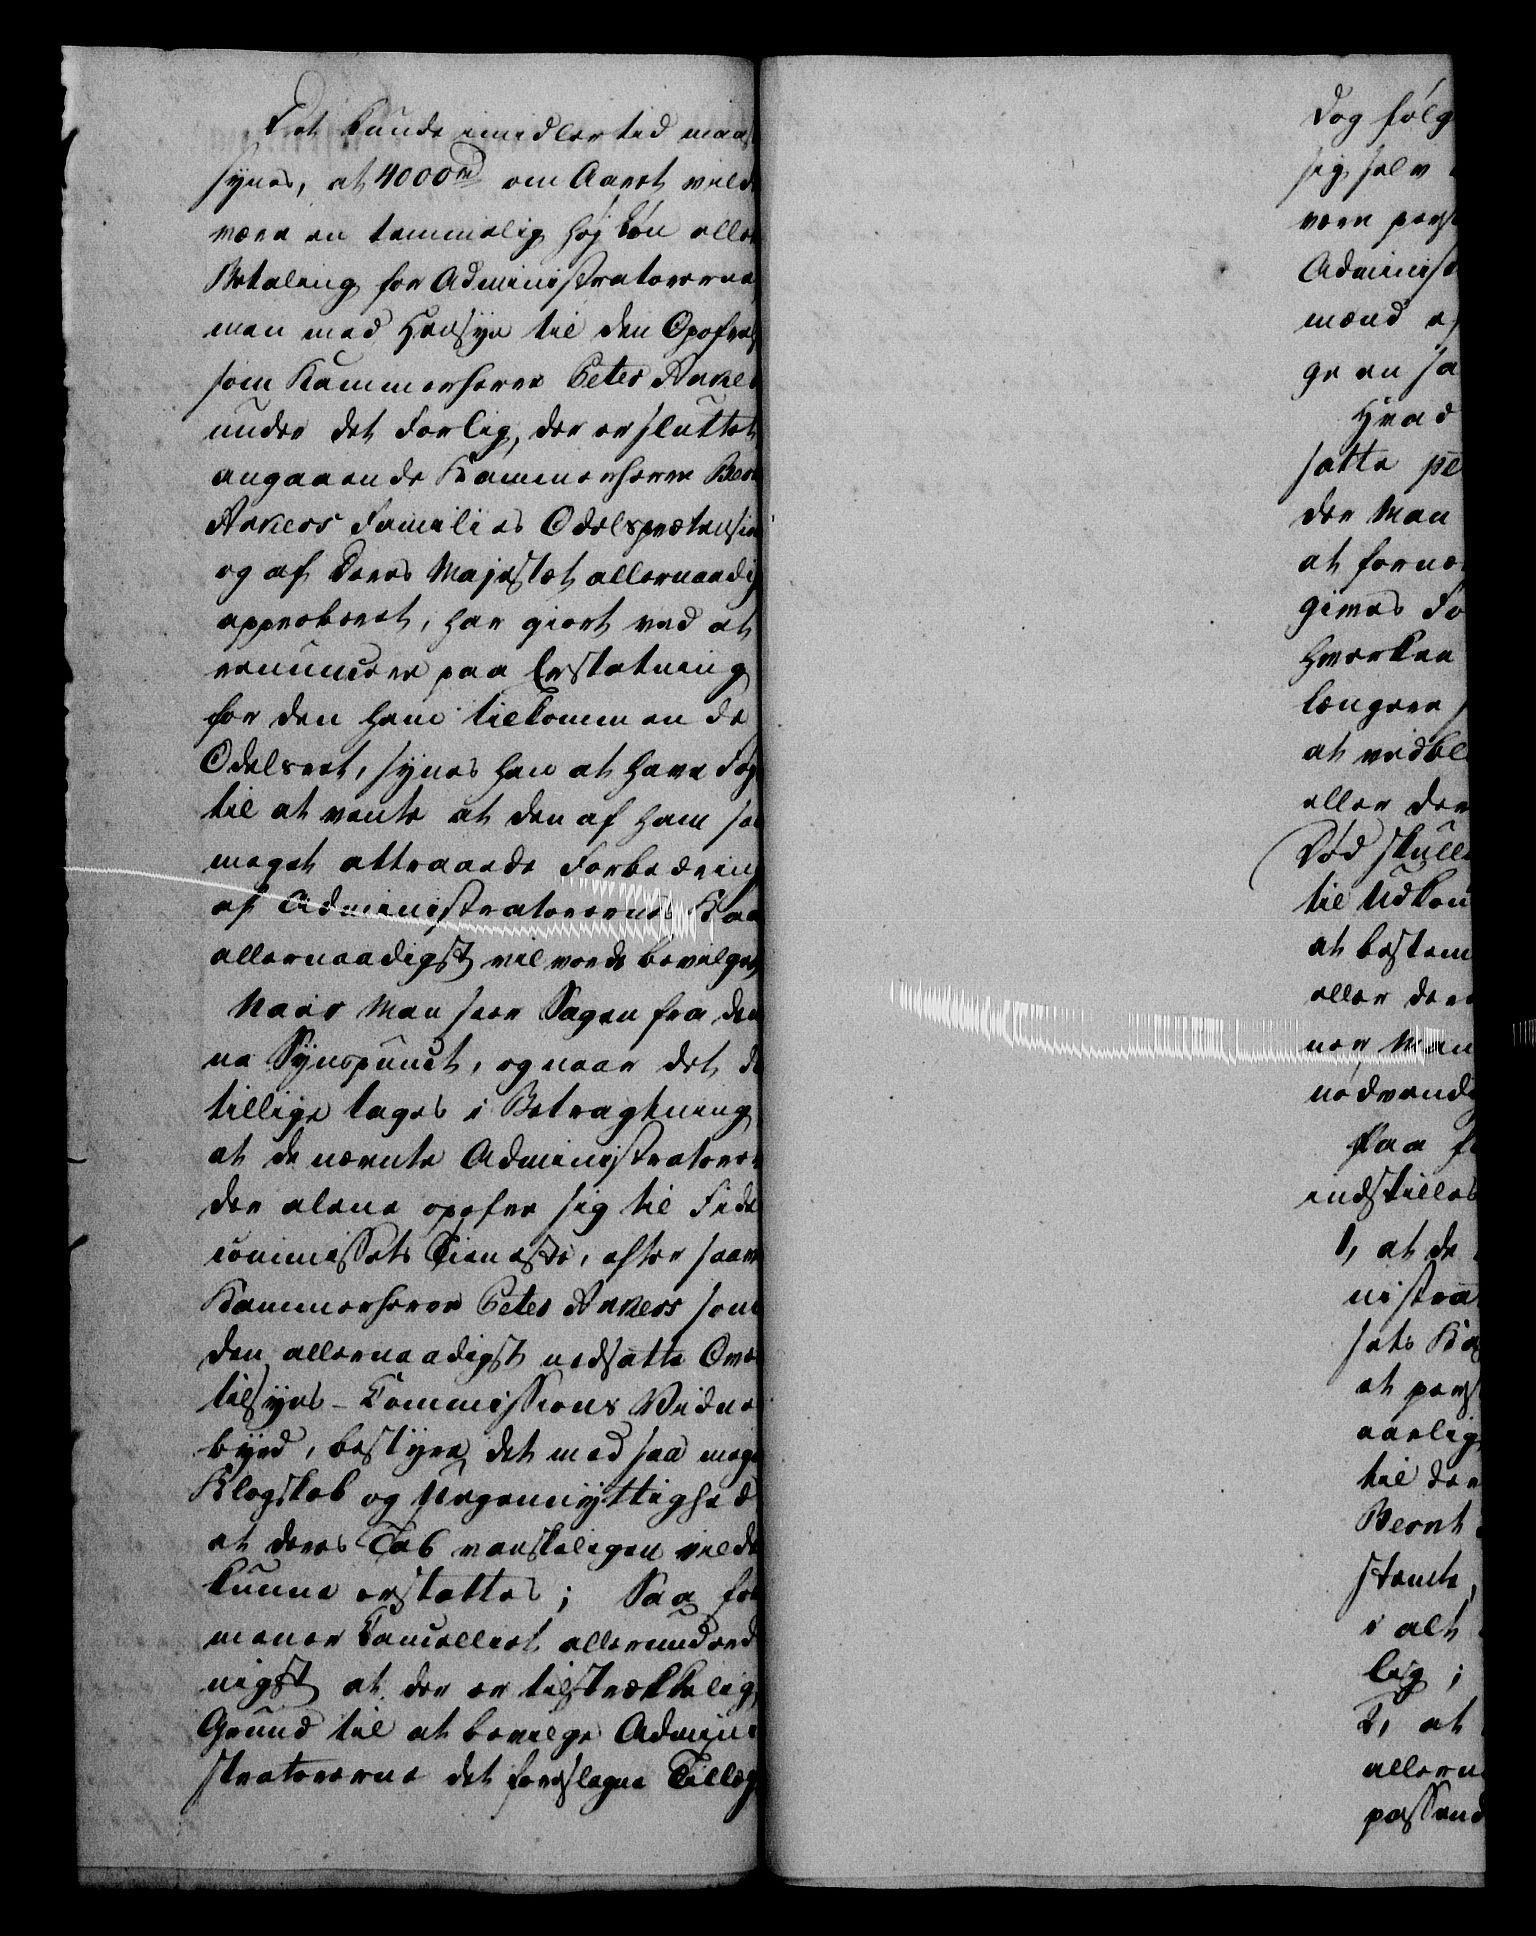 Det kunde imidlertid maas
synes, at 4000 rd om Aaret vild
være en temmelig høj Løn eller
Betaling for Administratorerne,
men med Hensyn til den Opofrels
som Kammerherre Peter Anker
under det Forlig, der er sluttet
angaaende Kammerherre Bernt
Ankers Families Odelsprætension
og af Deres Majestæt allernaadig
approberet, har giort ved at
renuncere paa Erstatning
for den ham tilkommende
Odelsret, synes han at have Føj
til at vente at den af ham saa
meget attraaede Forbedring
af Administratorernes Kaar
allernaadigst vil vorde bevilget,
Naar Man seer Sagen fra den
ne Synspunct, og naar det d
tillige tages i Betragtning
at de nævnte Administratorer
der alene opofre sig til Fidei
commissets Tieneste, efter saavel
Kammerherre Peter Ankers som
den allernaadigst nedsatte Over
tilsyns-Commissions Vidnes
byrd, bestyre det med saa megen
Klogskab og Uegennyttighed
at deres Tab vanskeligen vilde
kunne erstattes; Saa for
mener Cancelliet allerunderd
nigst at der er tilstrækkelig
Grund til at bevilge Admini
stratorerne det foreslagne Tillæg
Dog følg
sig selv
være pers
Administ
mænd ef
ge en sa
Hvad
satte pe
der Man
at fornæ
gives Fo
hverken
længere
at vedbl
eller der
Død skulle
til Udkom
at bestem
eller dere
ner Man
nødvendi
Paa f
indstilles
1, at de
nistra
sets Ka
et pers
aarlig
til der
Bernt
stemte,
i alt
lig;
2, at
allern
passend